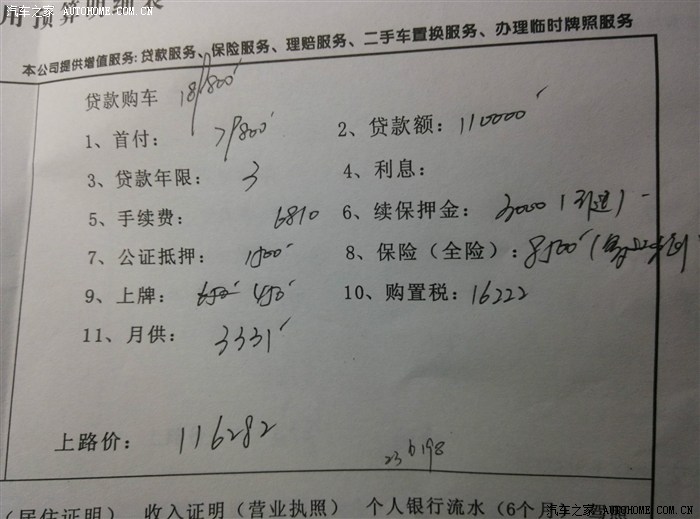 汽车之家 AUTOHOME.COM.CN
用预算明细表
本公司提供增值服务: 贷款服务、保险服务、理赔服务、二手车置换服务、办理临时牌照服务
贷款购车 181800
1、首付: 71800 2、贷款额: 110000
3、贷款年限: 3 4、利息:
5、手续费: 6810 6、续保押金: 3000 (可退)
7、公证抵押: 1500 8、保险(全险): 8500 (
9、上牌: 650 450 10、购置税: 16222
11、月供: 3331
上路价: 116282
236198
(居住证明) 收入证明(营业执照) 个人银行流水(6个月)
汽车之家 AUTOHOME.COM.CN